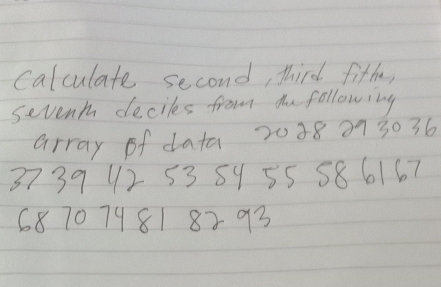 Calculate second, third fithe,
seventh deciles from the following
array of data 20 28 29 30 36
37 39 42 53 54 55 58 61 67
68 70 74 81 82 93